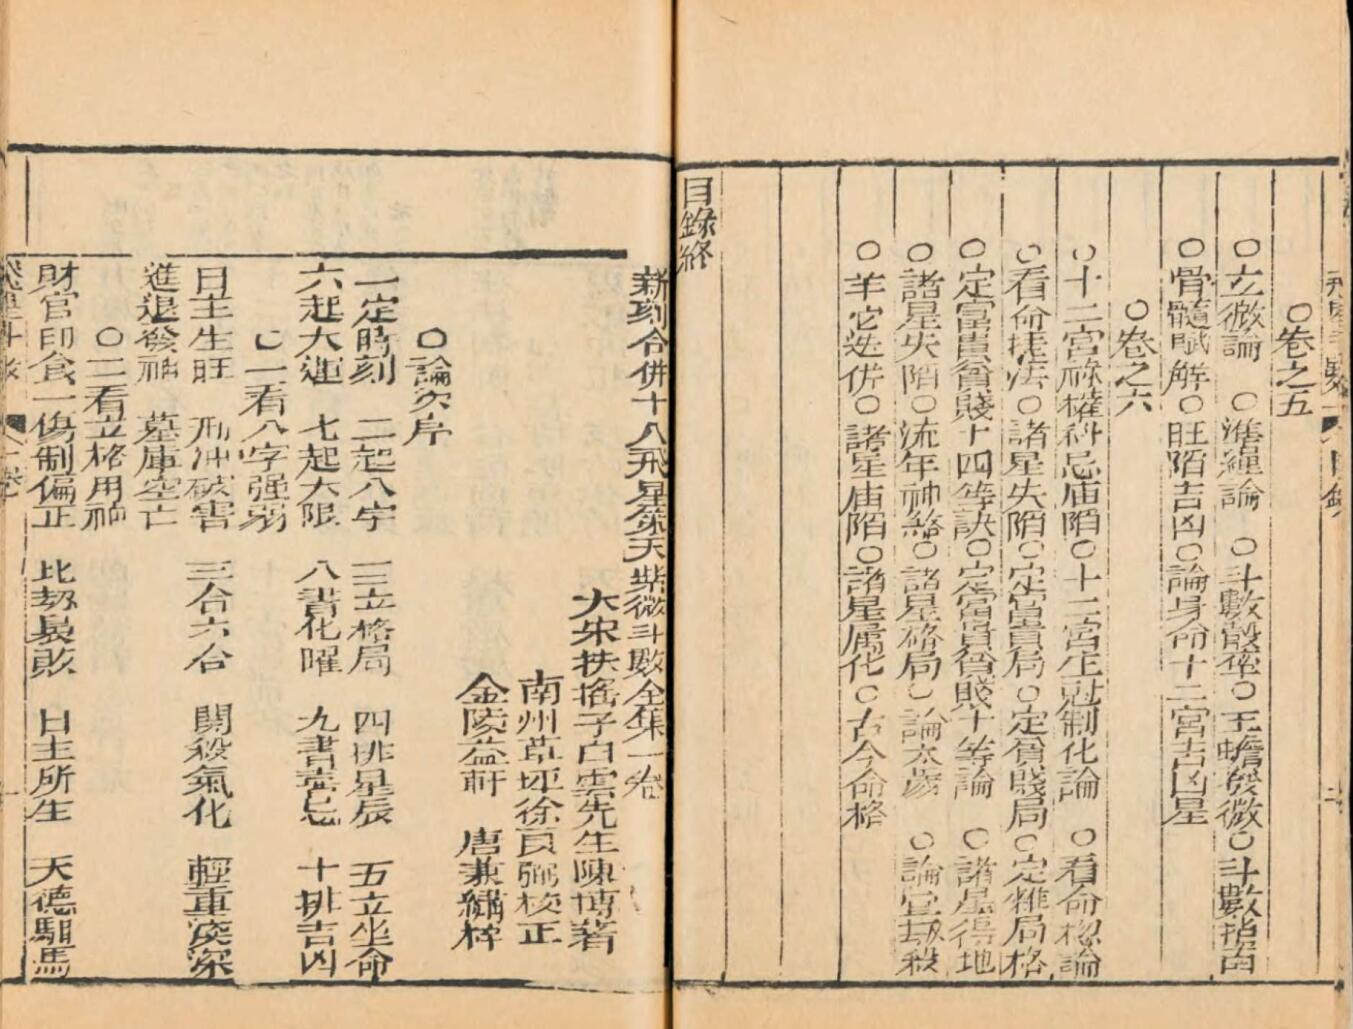 ○卷之五
○立微論 ○準繩論 ○斗數骰率○玉蟾發微○斗數指南
○骨髓賦解○旺陷吉凶○論身命十二宮吉凶星
○卷之六
○十二宮祿權科忌庙陷○十二宮生尅制化論 ○看命捴論
○看命捷法○諸星失陷○定富貴局○定貧賤局○定雜局格
○定富貴貧賤十四等訣○定富貴貧賤十等論 ○諸星得地
○諸星失陷○流年神絡○諸星格局○論太歲 ○論宣刼殺
○羊它迭併○諸星庙陷○諸星属化○古今命格
目錄終
新刻合併十八飛星策天紫微斗數全集一卷
大宋扶搖子白雲先生陳摶著
南州草坪徐良弼校正
金陵益軒 唐兼繡梓
○論次序
一定時刻 二起八字 三立格局 四排星辰 五立坐命
六起大運 七起大限 八書化曜 九書喜忌 十排吉凶
○一看八字强弱
日主生旺 刑冲破害 三合六合 閗殺氣化 輕重淺深
進退發神 墓庫空亡
○二看立格用神
財官印食 傷制偏正 比刼長敗 日主所生 天德馹馬